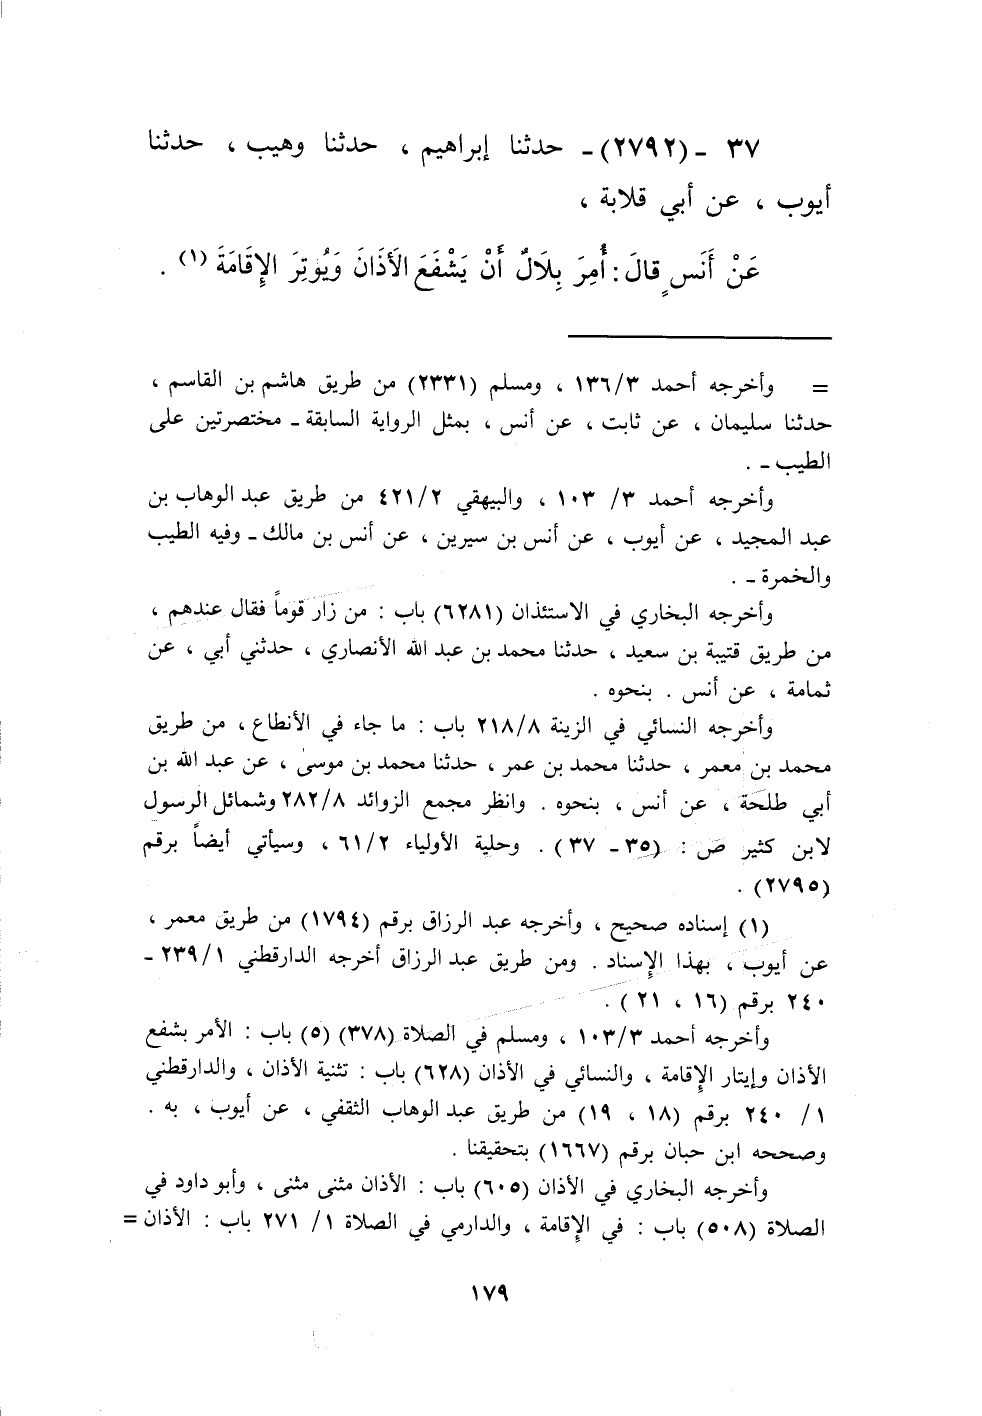 ٣٧ - (٢٧٩٢) - حدثنا إبراهيم ، حدثنا وهيب ، حدثنا
أيوب ، عن أبي قلابة ،
عَنْ أَنَسٍ قالَ : أُمِرَ بِلَالٌ أَنْ يَشْفَعَ الأَذَانَ وَيُوتِرَ الإِقَامَةَ (١) .
= وأخرجه أحمد ١٣٦/٣ ، ومسلم (٢٣٣١) من طريق هاشم بن القاسم ،
حدثنا سليمان ، عن ثابت ، عن أنس ، بمثل الرواية السابقة - مختصرتين على
الطيب - .
وأخرجه أحمد ٣/ ١٠٣ ، والبيهقي ٤٢١/٢ من طريق عبد الوهاب بن
عبد المجيد ، عن أيوب ، عن أنس بن سيرين ، عن أنس بن مالك - وفيه الطيب
والخمرة - .
وأخرجه البخاري في الاستئذان (٦٢٨١) باب : من زار قوماً فقال عندهم ،
من طريق قتيبة بن سعيد ، حدثنا محمد بن عبد الله الأنصاري ، حدثني أبي ، عن
ثمامة ، عن أنس . بنحوه .
وأخرجه النسائي في الزينة ٢١٨/٨ باب : ما جاء في الأنطاع ، من طريق
محمد بن معمر ، حدثنا محمد بن عمر ، حدثنا محمد بن موسىٰ ، عن عبد الله بن
أبي طلحة ، عن أنس ، بنحوه . وانظر مجمع الزوائد ٢٨٢/٨ وشمائل الرسول
لابن كثير ص : (٣٥ - ٣٧ ) . وحلية الأولياء ٦١/٢ ، وسيأتي أيضاً برقم
(٢٧٩٥) .
(١) إسناده صحيح ، وأخرجه عبد الرزاق برقم (١٧٩٤) من طريق معمر ،
عن أيوب ، بهذا الإسناد . ومن طريق عبد الرزاق أخرجه الدارقطني ٢٣٩/١ -
٢٤٠ برقم (١٦ ، ٢١ ) .
وأخرجه أحمد ١٠٣/٣ ، ومسلم في الصلاة (٣٧٨) (٥) باب : الأمر بشفع
الأذان وإيتار الإقامة ، والنسائي في الأذان (٦٢٨) باب : تثنية الأذان ، والدارقطني
١/ ٢٤٠ برقم (١٨ ، ١٩) من طريق عبد الوهاب الثقفي ، عن أيوب ، به .
وصححه ابن حبان برقم (١٦٦٧) بتحقيقنا .
وأخرجه البخاري في الأذان (٦٠٥) باب : الأذان مثنى مثنى ، وأبو داود في
الصلاة (٥٠٨) باب : في الإقامة ، والدارمي في الصلاة ١/ ٢٧١ باب : الأذان =
١٧٩